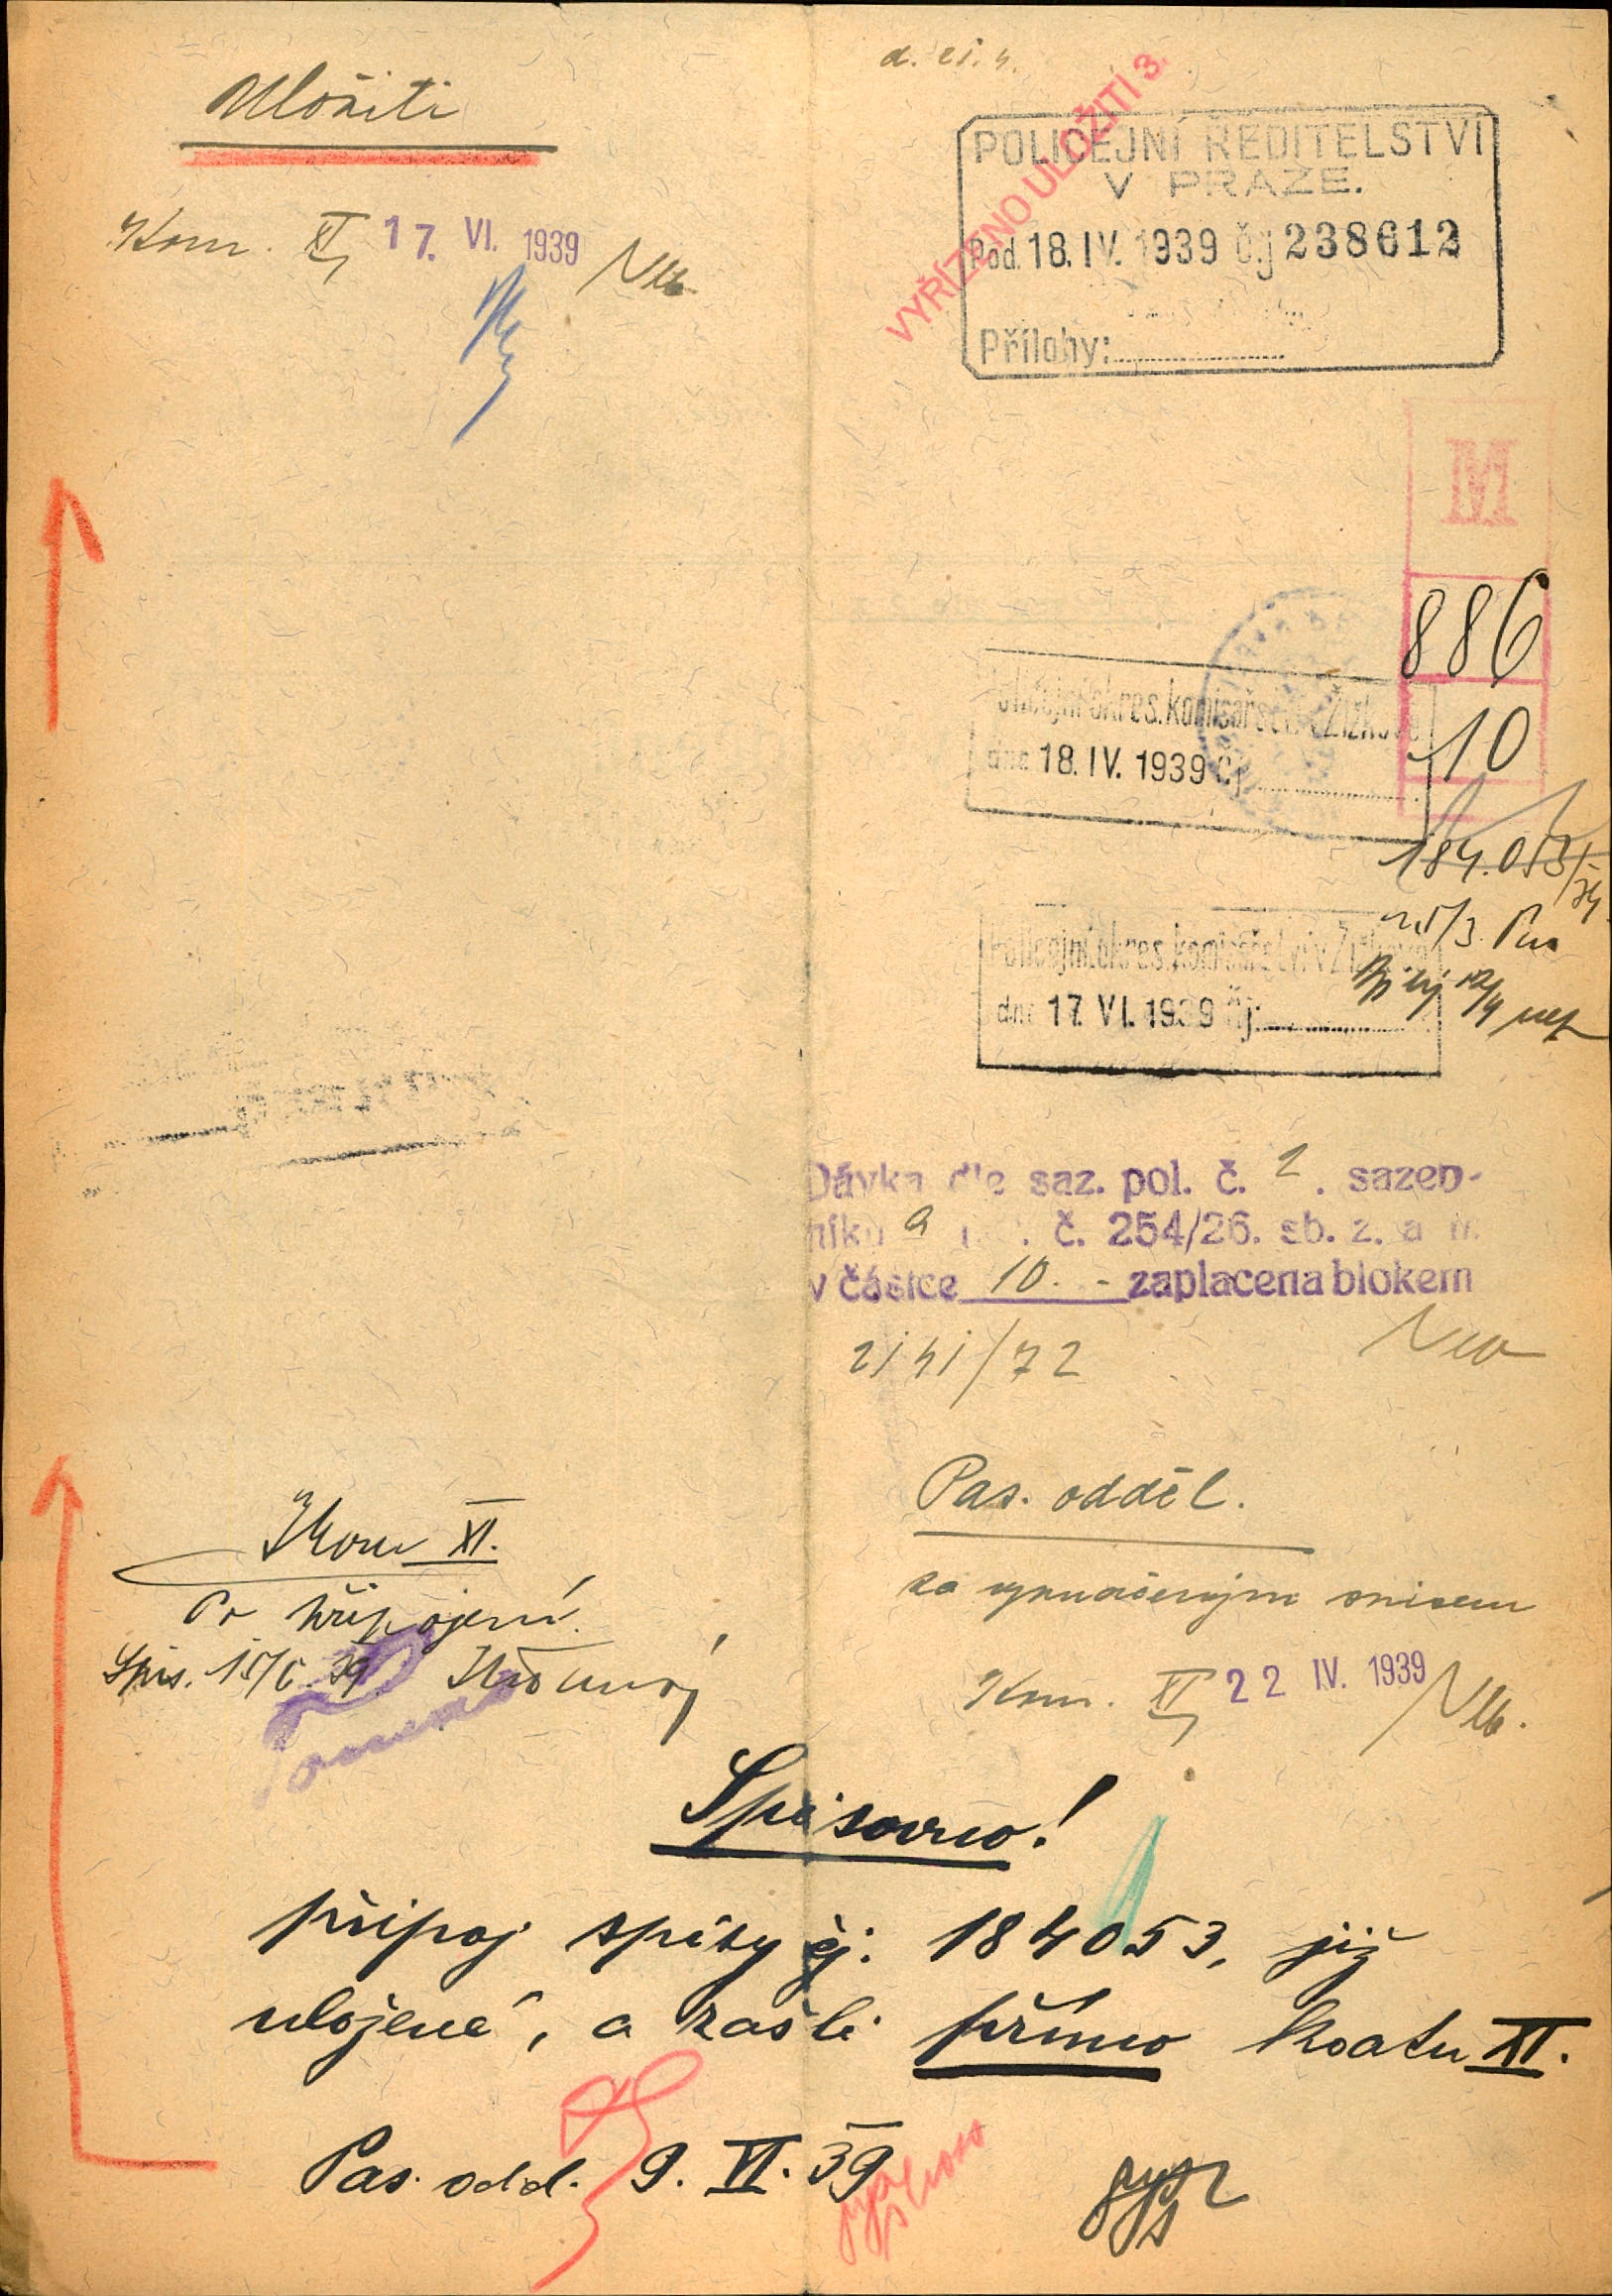 Uložiti
Kom. XI, 17. VI. 1939
VYŘÍZENO ULOŽITI 3.
POLICEJNÍ ŘEDITELSTVÍ
V PRAZE.
Pod. 18. IV. 1939 č.j 238612
Přílohy:
M
886
10
Policejní okres. komisařství v Žižkově
dne 18. IV. 1939 Čj
184.053/
Policejní okres. komisařství v Žižkově
dne 17. VI. 1939 Čj:
Dávka dle saz. pol. č. 2. sazeb-
níku a č. 254/26. sb. z. a n.
v částce 10.- zaplacena blokem
Pas. odděl.
se vyznačeným spisem
Kom. XI, 22 IV. 1939
Kom XI.
Po připojení.
Spis. 15/6 39
Spisovno!
připoj spisy čj. 184053, již
uložené, a zašli přímo koatu XI.
Pas. odd. 9. VI. 39